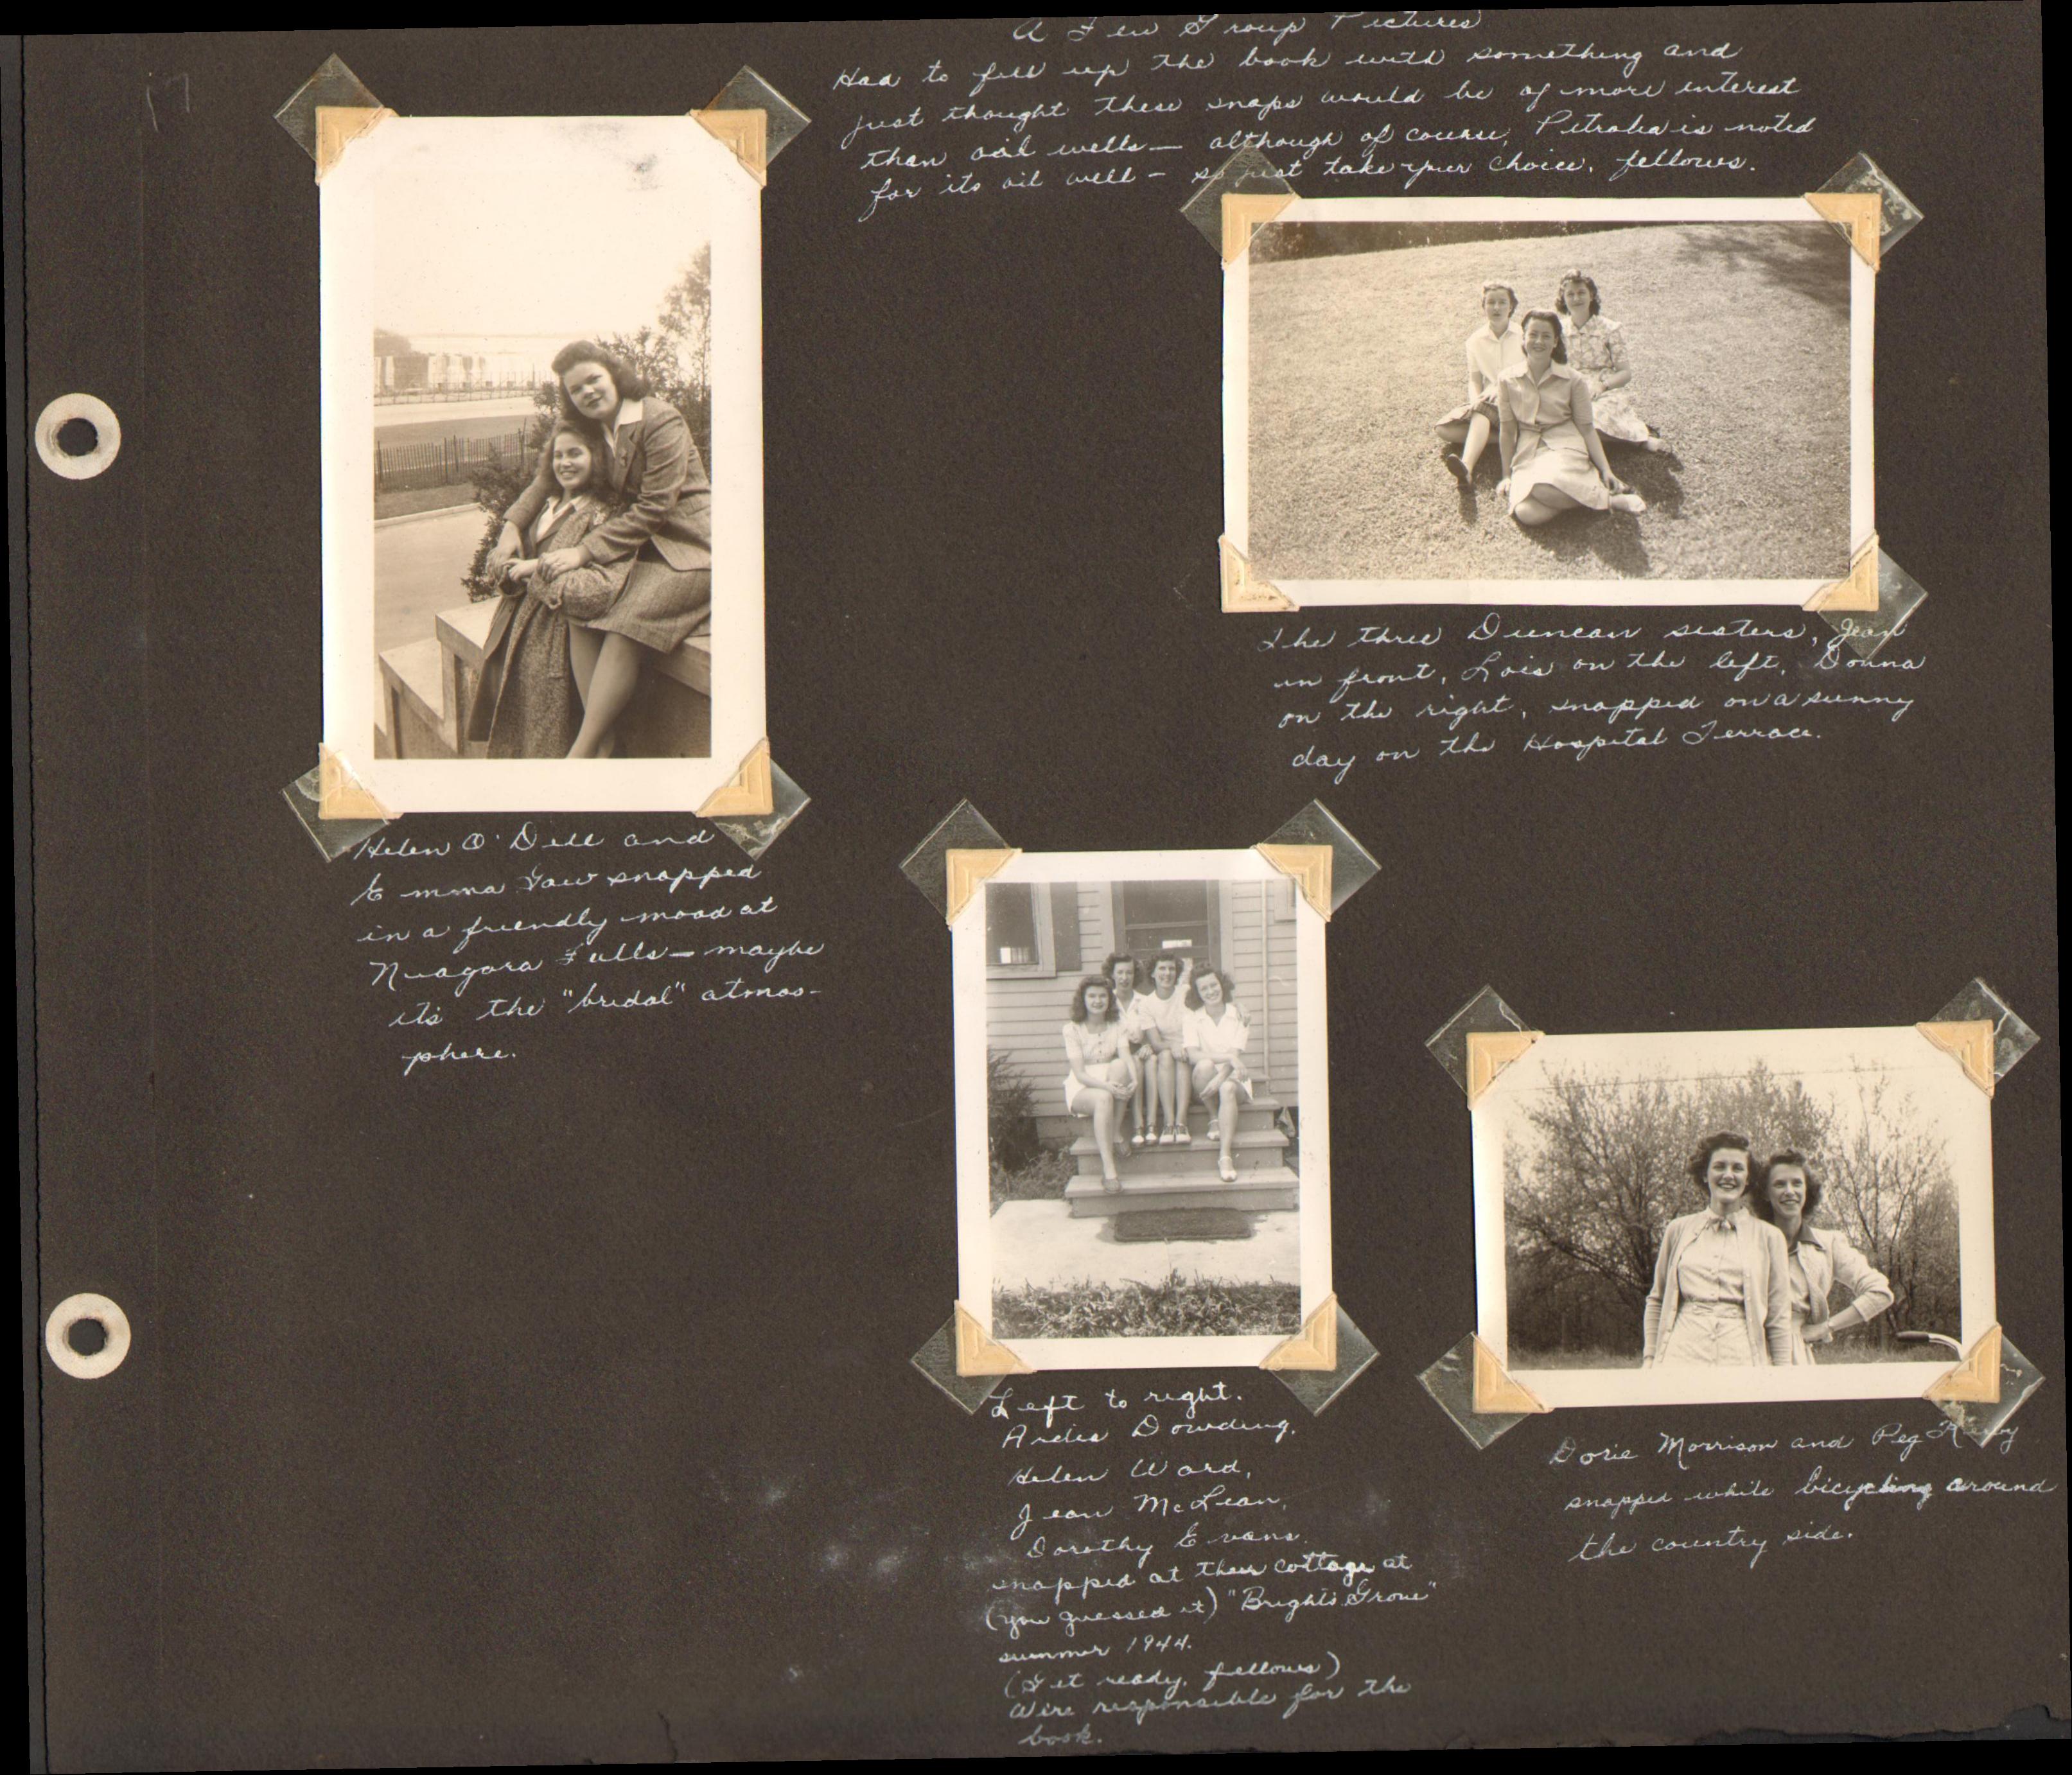 17
A Few Group Pictures
Had to fill up the book with something and
just thought these snaps would be of more interest
than oil wells — although of course, Petrolia is noted
for its oil well - so just take your choice, fellows.
The three Duncan sisters, Jean
in front, Lois on the left, Donna
on the right, snapped on a sunny
day on the Hospital Terrace.
Helen O'Dell and
Emma Gaw snapped
in a friendly mood at
Niagara Falls — maybe
it's the "bridal" atmos-
phere.
Left to right.
Ardis Dowding,
Helen Ward,
Jean McLean,
Dorothy Evans.
snapped at their cottage at
(you guessed it) "Bright's Grove"
summer 1944.
(Get ready, fellows)
We're responsible for the
book.
Dorie Morrison and Peg
snapped while bicycling around
the country side.